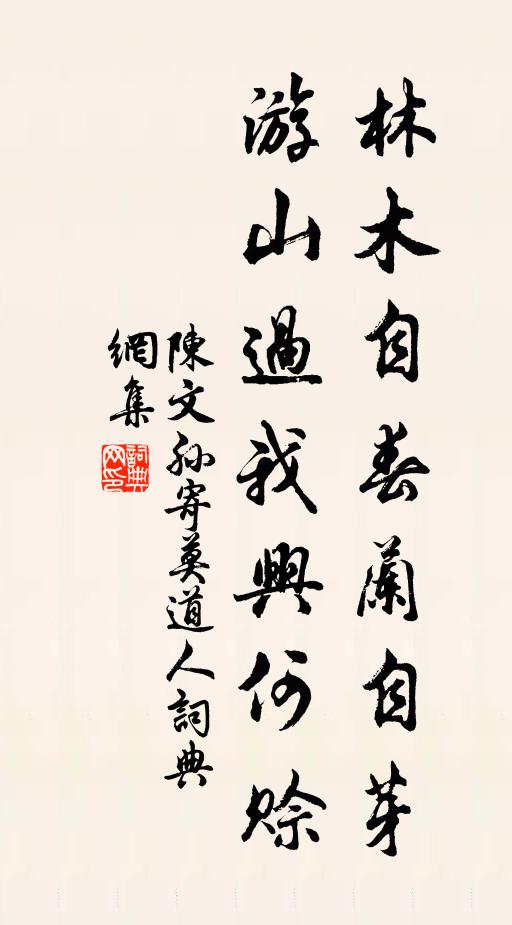 林木自春蘭自芽
游山過我興何賒
陳文孫寄莫道人詞典
網集
詞典網印